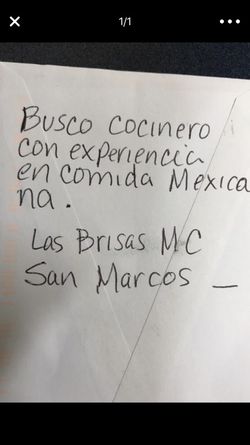 1/1
Busco cocinero
con experiencia
en comida Mexica
na.
Las Brisas MC
San Marcos _